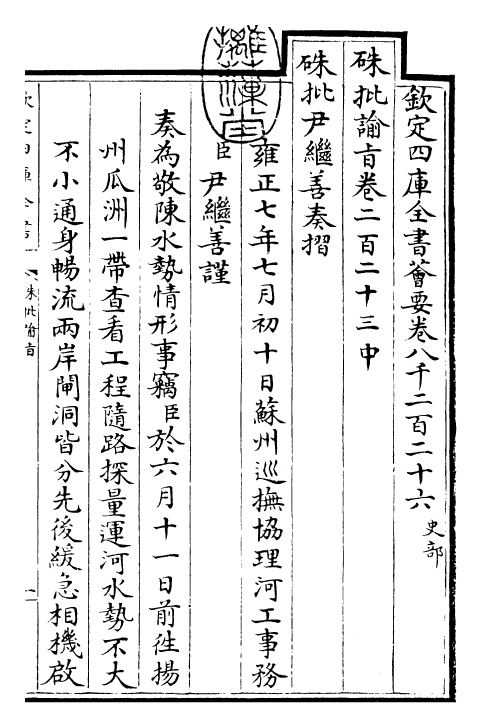 欽定四庫全書薈要卷八千二百二十六 史部
硃批諭旨卷二百二十三中
硃批尹繼善奏摺
雍正七年七月初十日蘇州巡撫協理河工事務
臣尹繼善謹
奏為敬陳水勢情形事竊臣於六月十一日前徃揚
州瓜洲一帶查看工程隨路探量運河水勢不大
不小通身暢流兩岸閘洞皆分先後緩急相機啟
欽定四庫全書
硃批諭旨
一